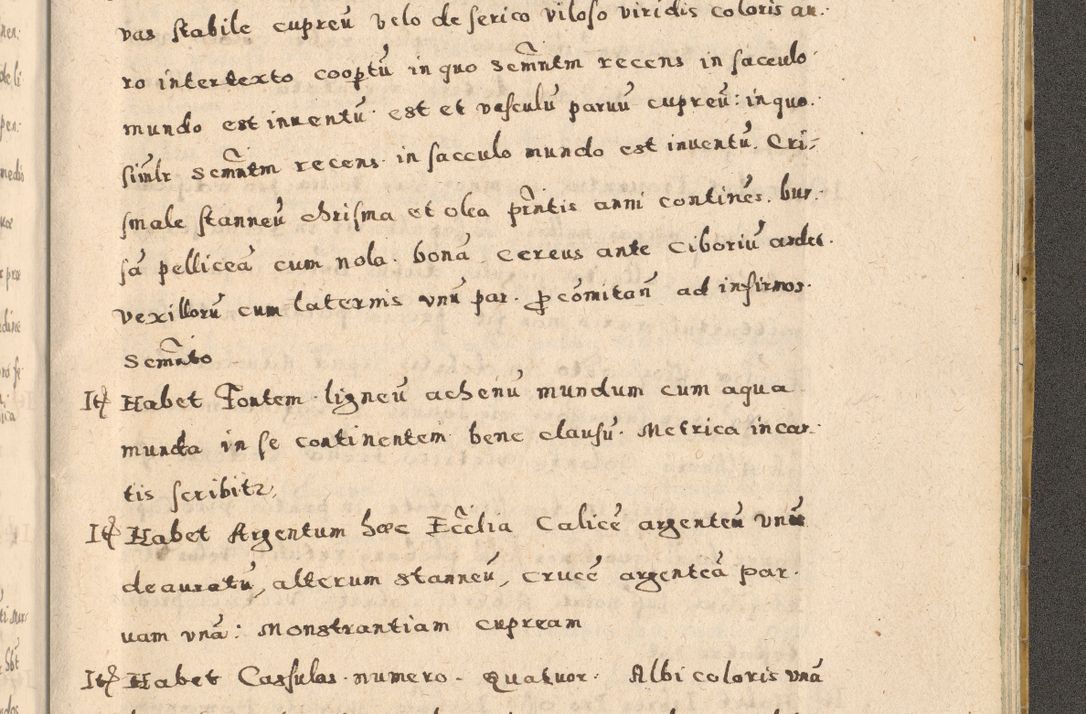 vas stabile cupreū velo de serico viloso viridis coloris au-
ro intertexto cooptū in quo Scm̄ntm recens in sacculo
mundo est inuentū est et vasculū paruū cupreū: in quo
simlr Scm̄ntm recens in sacculo mundo est inuentū. Cri-
smale stanneū chrisma et olea prn̄tis anni continēs. bur-
sā pelliceā cum nola. bonā. Cereus ante Ciboriū ardet.
vexillorū cum laternis vnū par. ꝓ comitan̄ ad infirmos.
Scm̄nto
Itē Habet Fontem ligneū aehenū mundum cum aqua
munda in se continentem bene clausū. Metrica in car-
tis scribitr.
Itē Habet Argentum hæc Eccl̄ia Calicē argenteū vnū
deauratū, alterum stanneū, crucē argenteā par-
uam vnā: Monstrantiam cupream
Itē Habet Casulas numero. quatuor. Albi coloris vnā